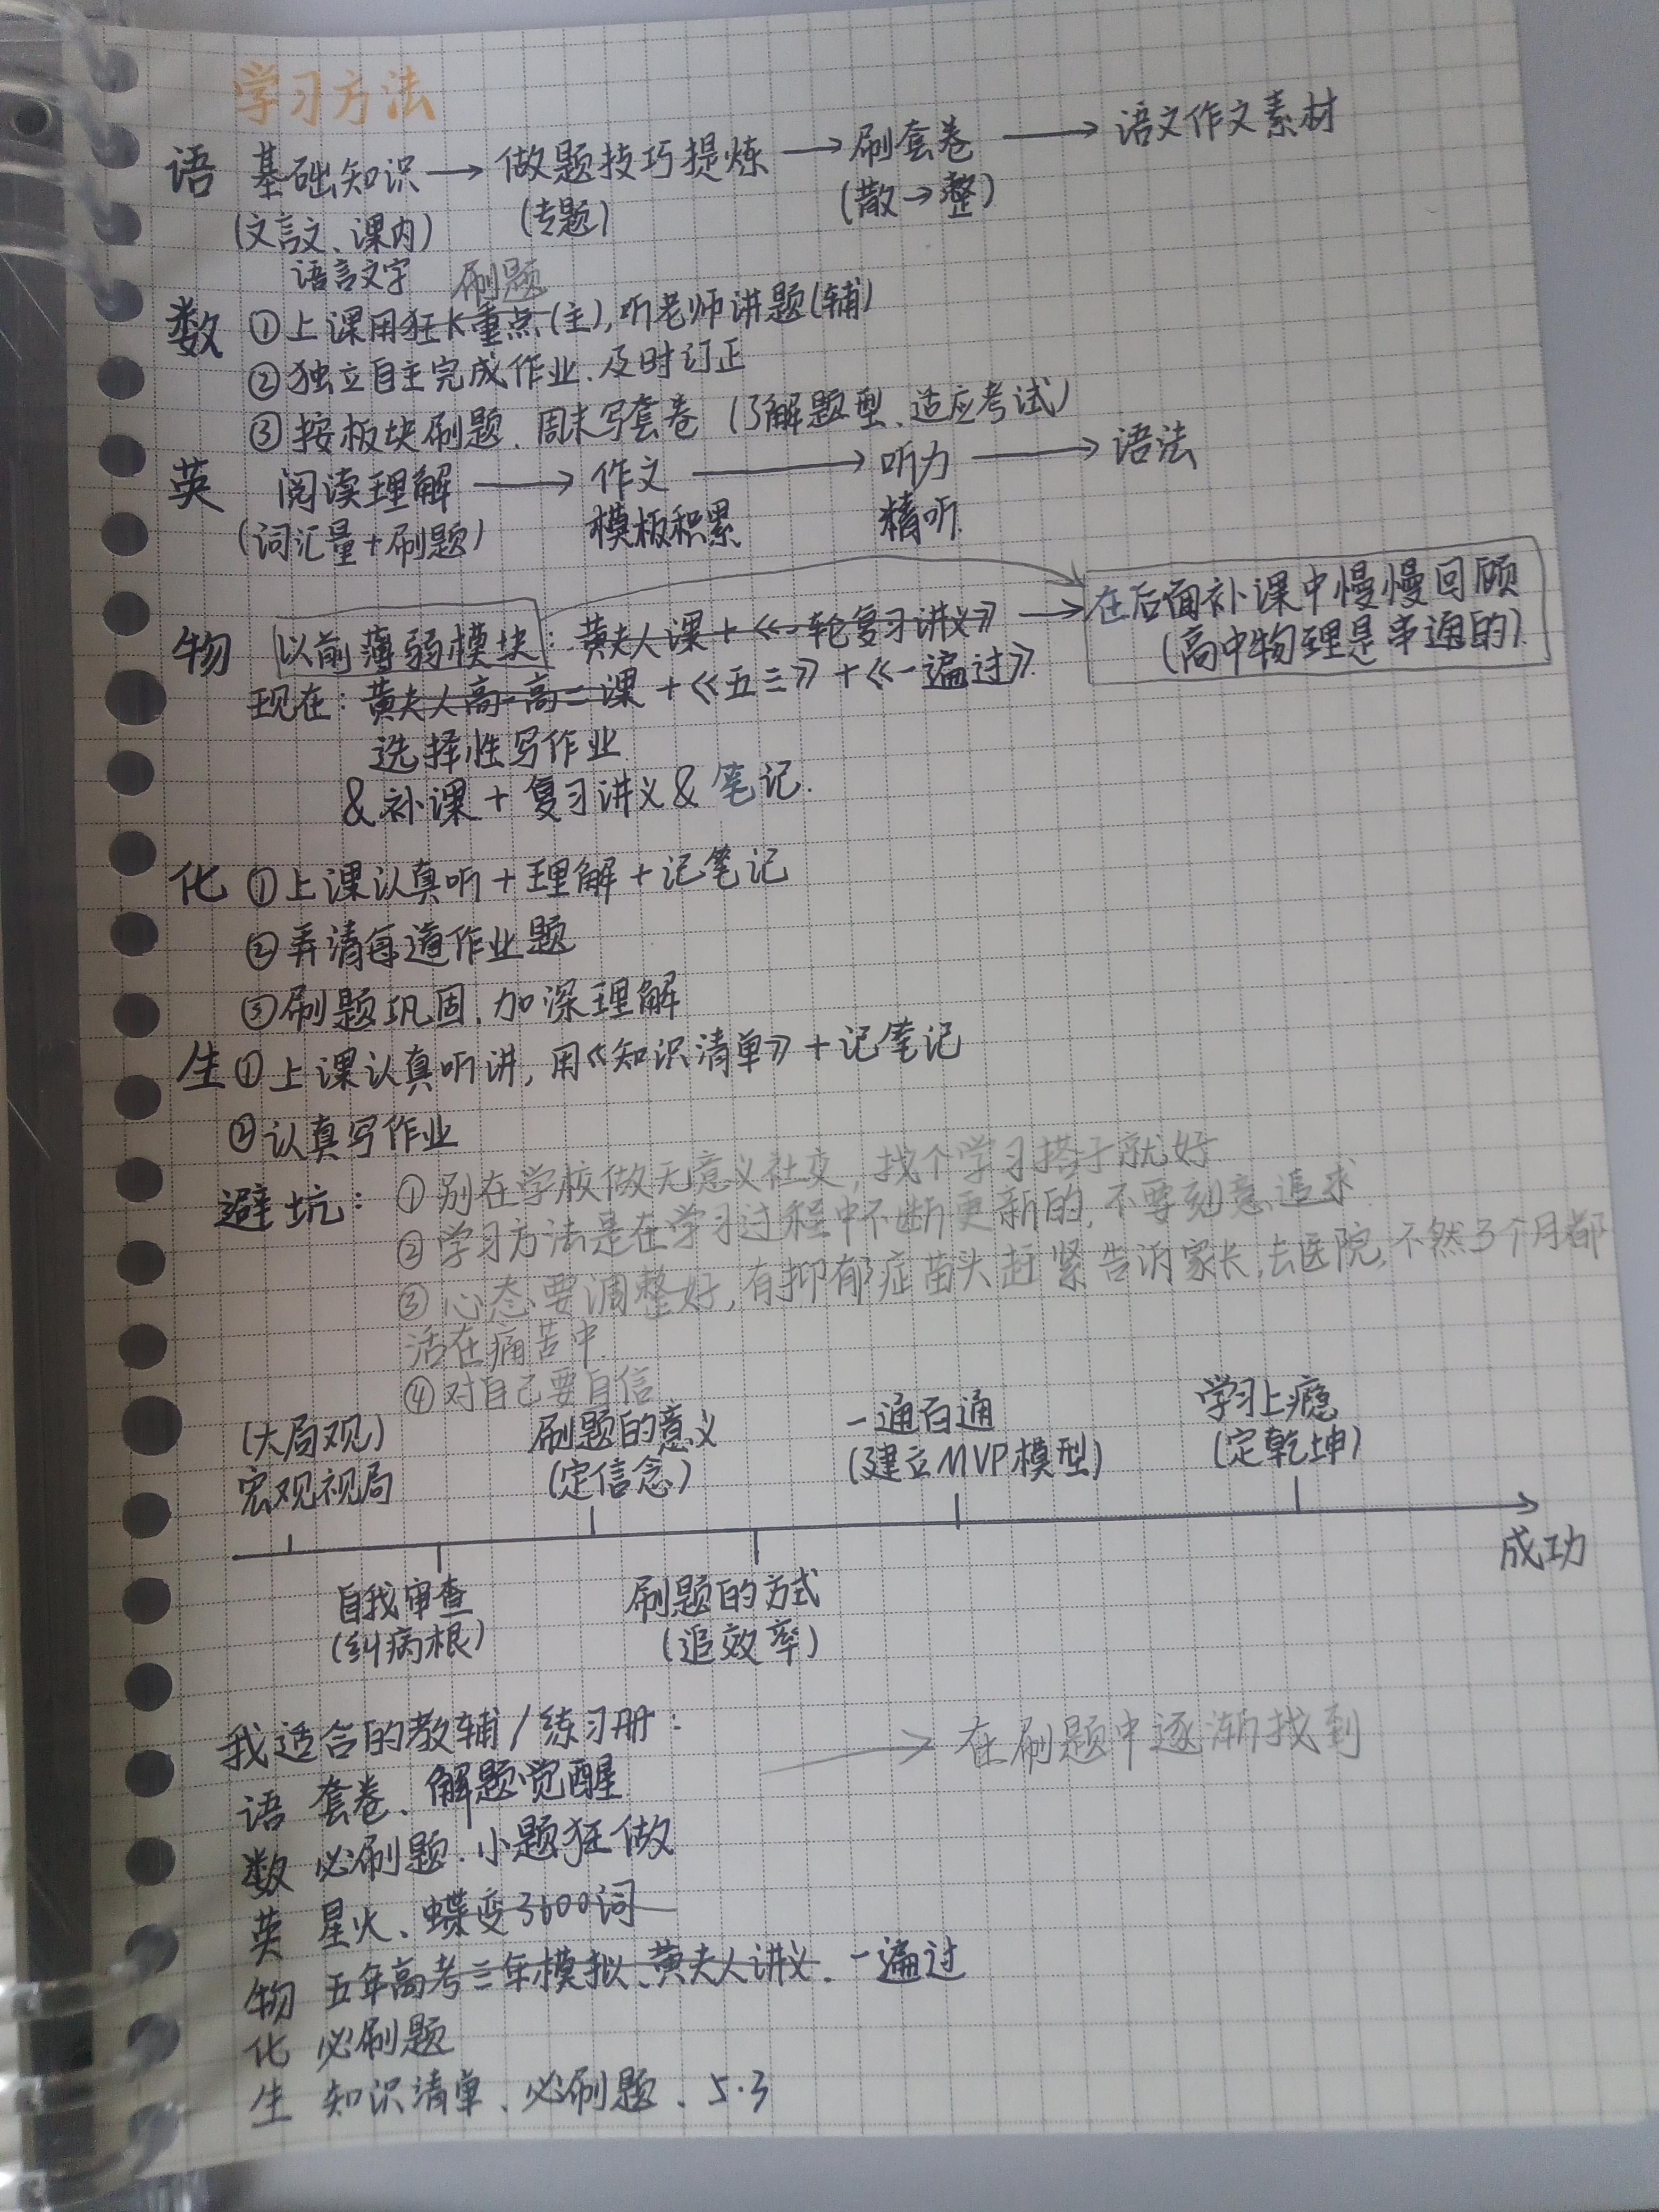 学习方法
语 基础知识 → 做题技巧提炼 → 刷套卷 → 语文作文素材
(文言文、课内) (专题) (散→整)
语言文字 刷题
数 ①上课用狂K重点(主),听老师讲题(辅)
②独立自主完成作业.及时订正
③按板块刷题.周末写套卷(了解题型、适应考试)
英 阅读理解 → 作文 → 听力 → 语法
(词汇量+刷题) 模板积累 精听.
物 以前薄弱模块:黄夫人课+《一轮复习讲义》→ 在后面补课中慢慢回顾
(高中物理是串通的).
现在:黄夫人高一高二课+《五三》+《一遍过》.
选择性写作业.
&补课+复习讲义&笔记.
化 ①上课认真听+理解+记笔记
②弄清每道作业题
③刷题巩固.加深理解
生 ①上课认真听讲,用《知识清单》+记笔记
②认真写作业
避坑:①别在学校做无意义社交,找个学习搭子就好
②学习方法是在学习过程中不断更新的,不要刻意追求.
③心态要调整好,有抑郁症苗头赶紧告诉家长,去医院,不然3个月都
活在痛苦中.
④对自己要自信
(大局观) 刷题的意义 一通百通 学习上瘾
宏观视局 (定信念) (建立MVP模型) (定乾坤)
成功
自我审查 刷题的方式
(纠病根) (追效率)
我适合的教辅/练习册: → 在刷题中逐渐找到
语 套卷、解题觉醒
数 必刷题.小题狂做
英 星火、蝶变3600词
物 五年高考三年模拟、黄夫人讲义.一遍过
化 必刷题
生 知识清单、必刷题、5·3